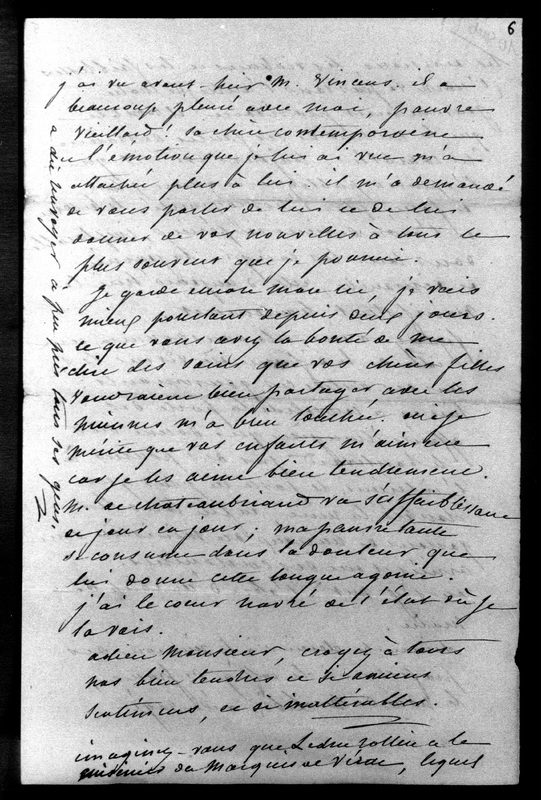 6
j'ai vu avant-hier M. Vincens. il a
beaucoup pleuré avec moi, pauvre
vieillard! sa chère contemporaine
et l'émotion que je lui ai vue m'a
attachée plus à lui. il m'a demandé
de vous parler de lui et de lui
donner de vos nouvelles à tous le
plus souvent que je pourrai.
Je garde encore mon lit, je vais
mieux pourtant depuis deux jours.
ce que vous avez la bonté de me
dire des soins que vos chères filles
voudraient bien partager avec les
miennes m'a bien touchée. oui je
mérite que vos enfants m'aiment
car je les aime bien tendrement.
M. de chateaubriand va s'affaiblissant
de jour en jour; ma pauvre tante
se consume dans la douleur que
lui donne cette longue agonie.
j'ai le coeur navré de l'état où je
la vois.
adieu Monsieur, croyez à tous
nos bien tendres et si anciens
sentimens, et si inaltérables.
imaginez-vous que Ledru rollin a le
du Marquis de lequel
a dû renvoyer à peu près tous ses gens.